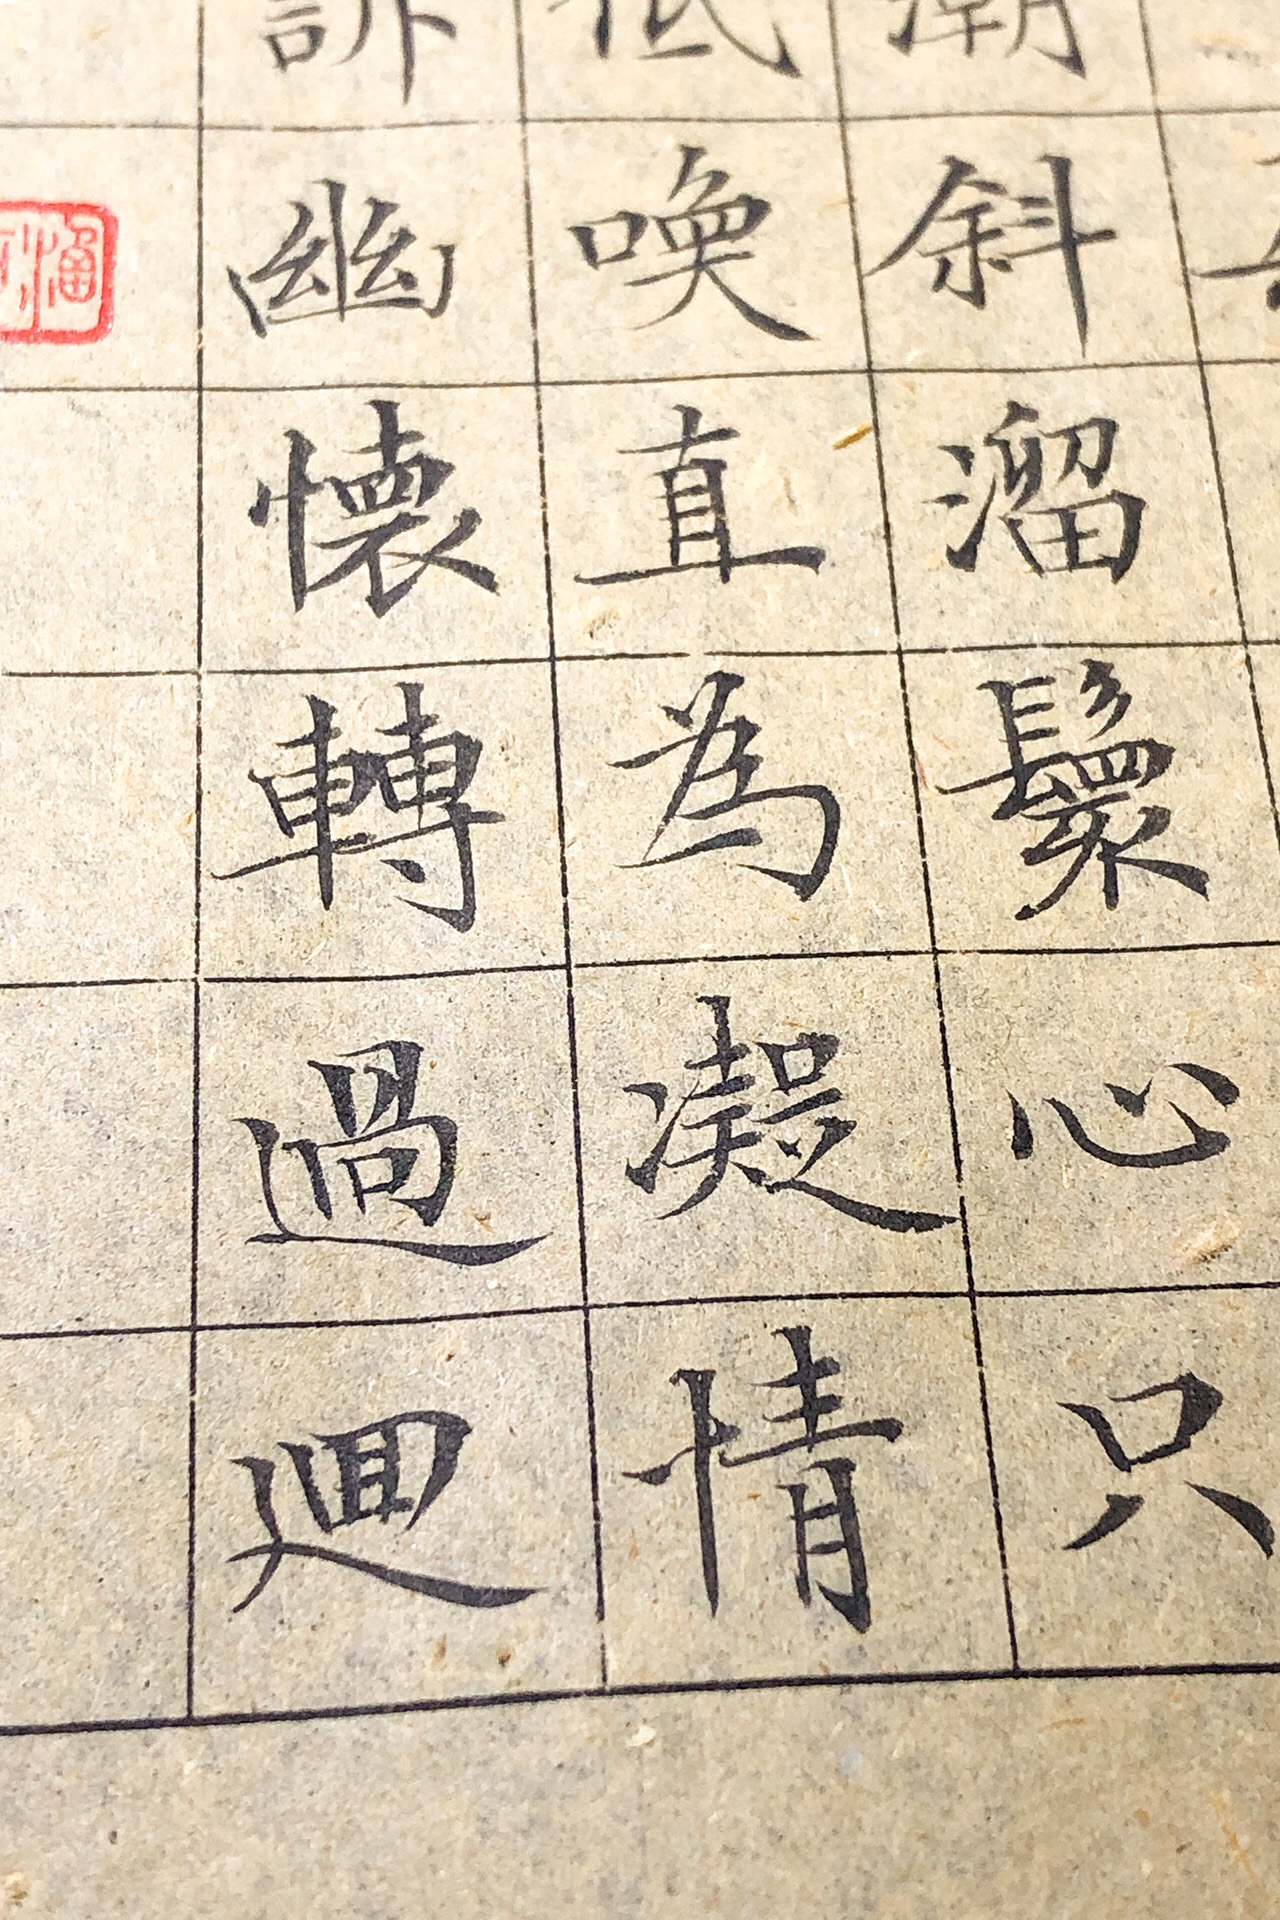 潮斜溜鬟心只
低喚直為凝情
訴幽懷轉過迴